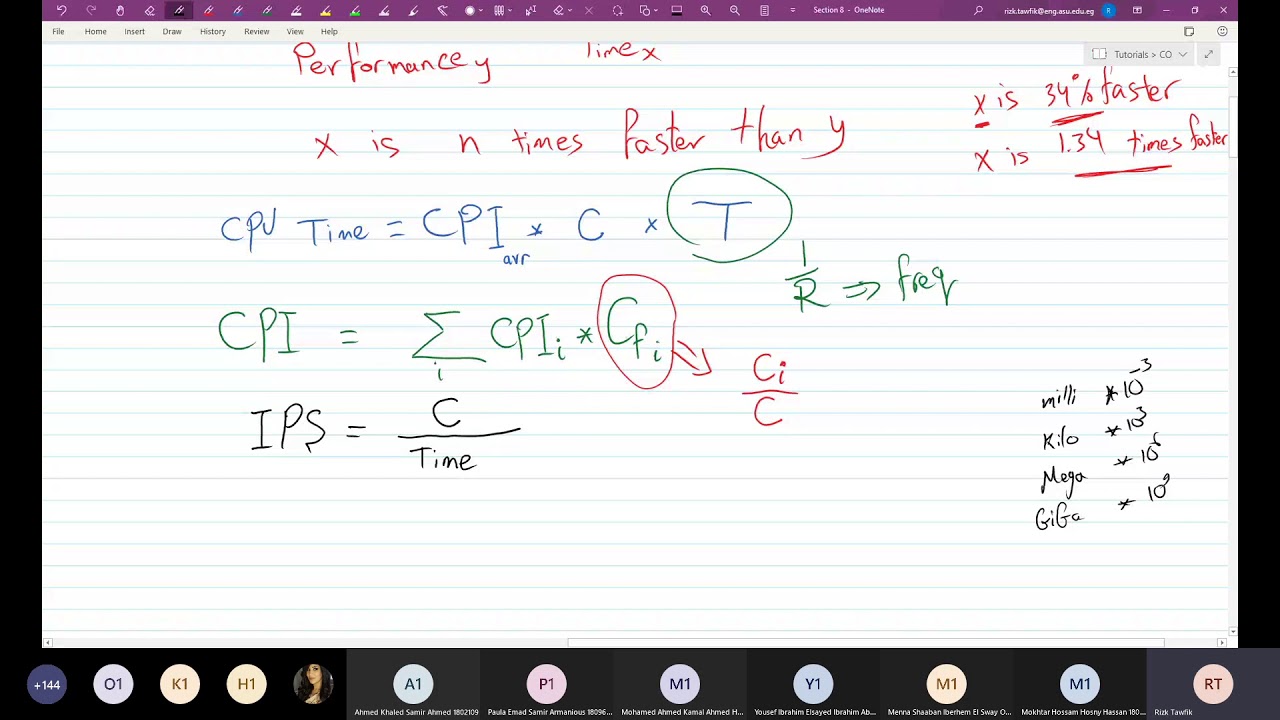 Section 8 - OneNote
rizk.tawfik@eng.asu.edu.eg R
File Home Insert Draw History Review View Help
Tutorials > CO
Performance y Time x
x is 34% faster
x is n times faster than y
x is 1.34 times faster
CPU Time = CPI avr * C * T
1/R => freq
CPI = ∑ i CPI i * C f i
C i / C
IPS = C / Time
milli * 10^-3
Kilo * 10^3
Mega * 10^6
GiGa * 10^9
+144 O1 K1 H1 A1 P1 M1 Y1 M1 M1 RT
Ahmed Khaled Samir Ahmed 1802109 Paula Emad Samir Armanious 18096... Mohamed Ahmed Kamal Ahmed H... Yousef Ibrahim Elsayed Ibrahim Ab... Menna Shaaban Iberhem El Sway O... Mokhtar Hossam Hosny Hassan 180... Rizk Tawfik